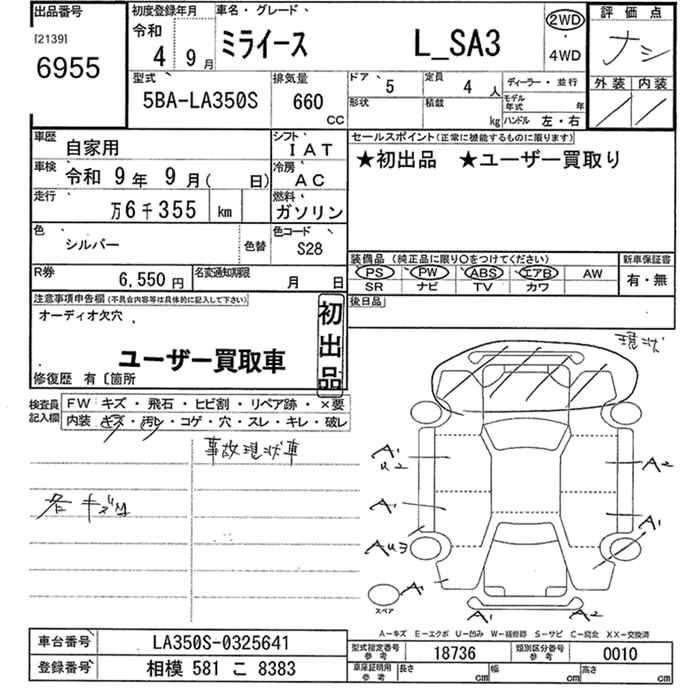 出品番号
[2139]
6955
初度登録年月
令和
4年 9月
車名・グレード
ミライース L_SA3
2WD
・
4WD
評価点
ナシ
外装 内装
型式
5BA-LA350S
排気量
660
cc
ドア 5
形状
定員 4 人
積載 kg
ディーラー・並行
モデル年式 年
ハンドル 左・右
車歴 自家用
車検 令和 9年 9月( 日)
走行
万6千355 km
色 シルバー 色替
シフト IAT
冷房 AC
燃料 ガソリン
色コード S28
R券 6,550円
名変通知期限 月 日
セールスポイント(正常に機能するものに限ります)
★初出品 ★ユーザー買取り
装備品(純正品に限り○をつけてください)
PS PW ABS エアB AW
SR ナビ TV カワ
新車保証書
有・無
後日品
注意事項申告欄(不具合内容等は具体的に記入して下さい)
オーディオ欠穴
ユーザー買取車
初出品
修復歴 有〔箇所
検査員記入欄
FW キズ・飛石・ヒビ割・リペア跡・×要
内装 キズ・汚レ・コゲ・穴・スレ・キレ・破レ
事故現状車
各キズM
現状
A1
U2
A2
A1
A1
AU3
A1
スペア
A1 A2
A-キズ E-エクボ U-凹み W-補修跡 S-サビ C-腐食 XX-交換済
車台番号 LA350S-0325641
登録番号 相模 581 こ 8383
型式指定番号 参考 18736
類別区分番号 参考 0010
車庫証明用 参考 長さ cm 幅 cm 高さ cm